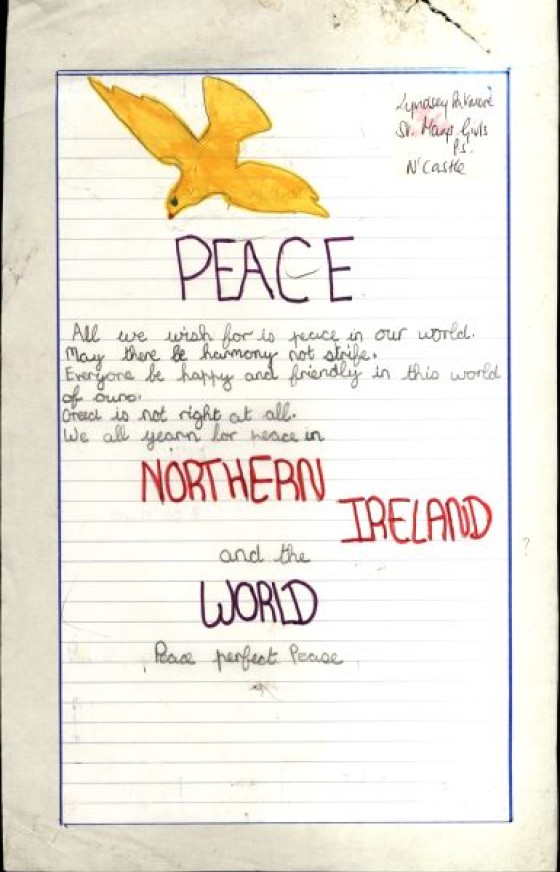 Lyndsey
St. Marys Girls
P.S.
N'Castle
PEACE
All we wish for is peace in our world.
May there be harmony not strife.
Everyone be happy and friendly in this world
of ours.
Greed is not right at all.
We all yearn for peace in
NORTHERN
IRELAND
and the
WORLD
Peace perfect Peace
?